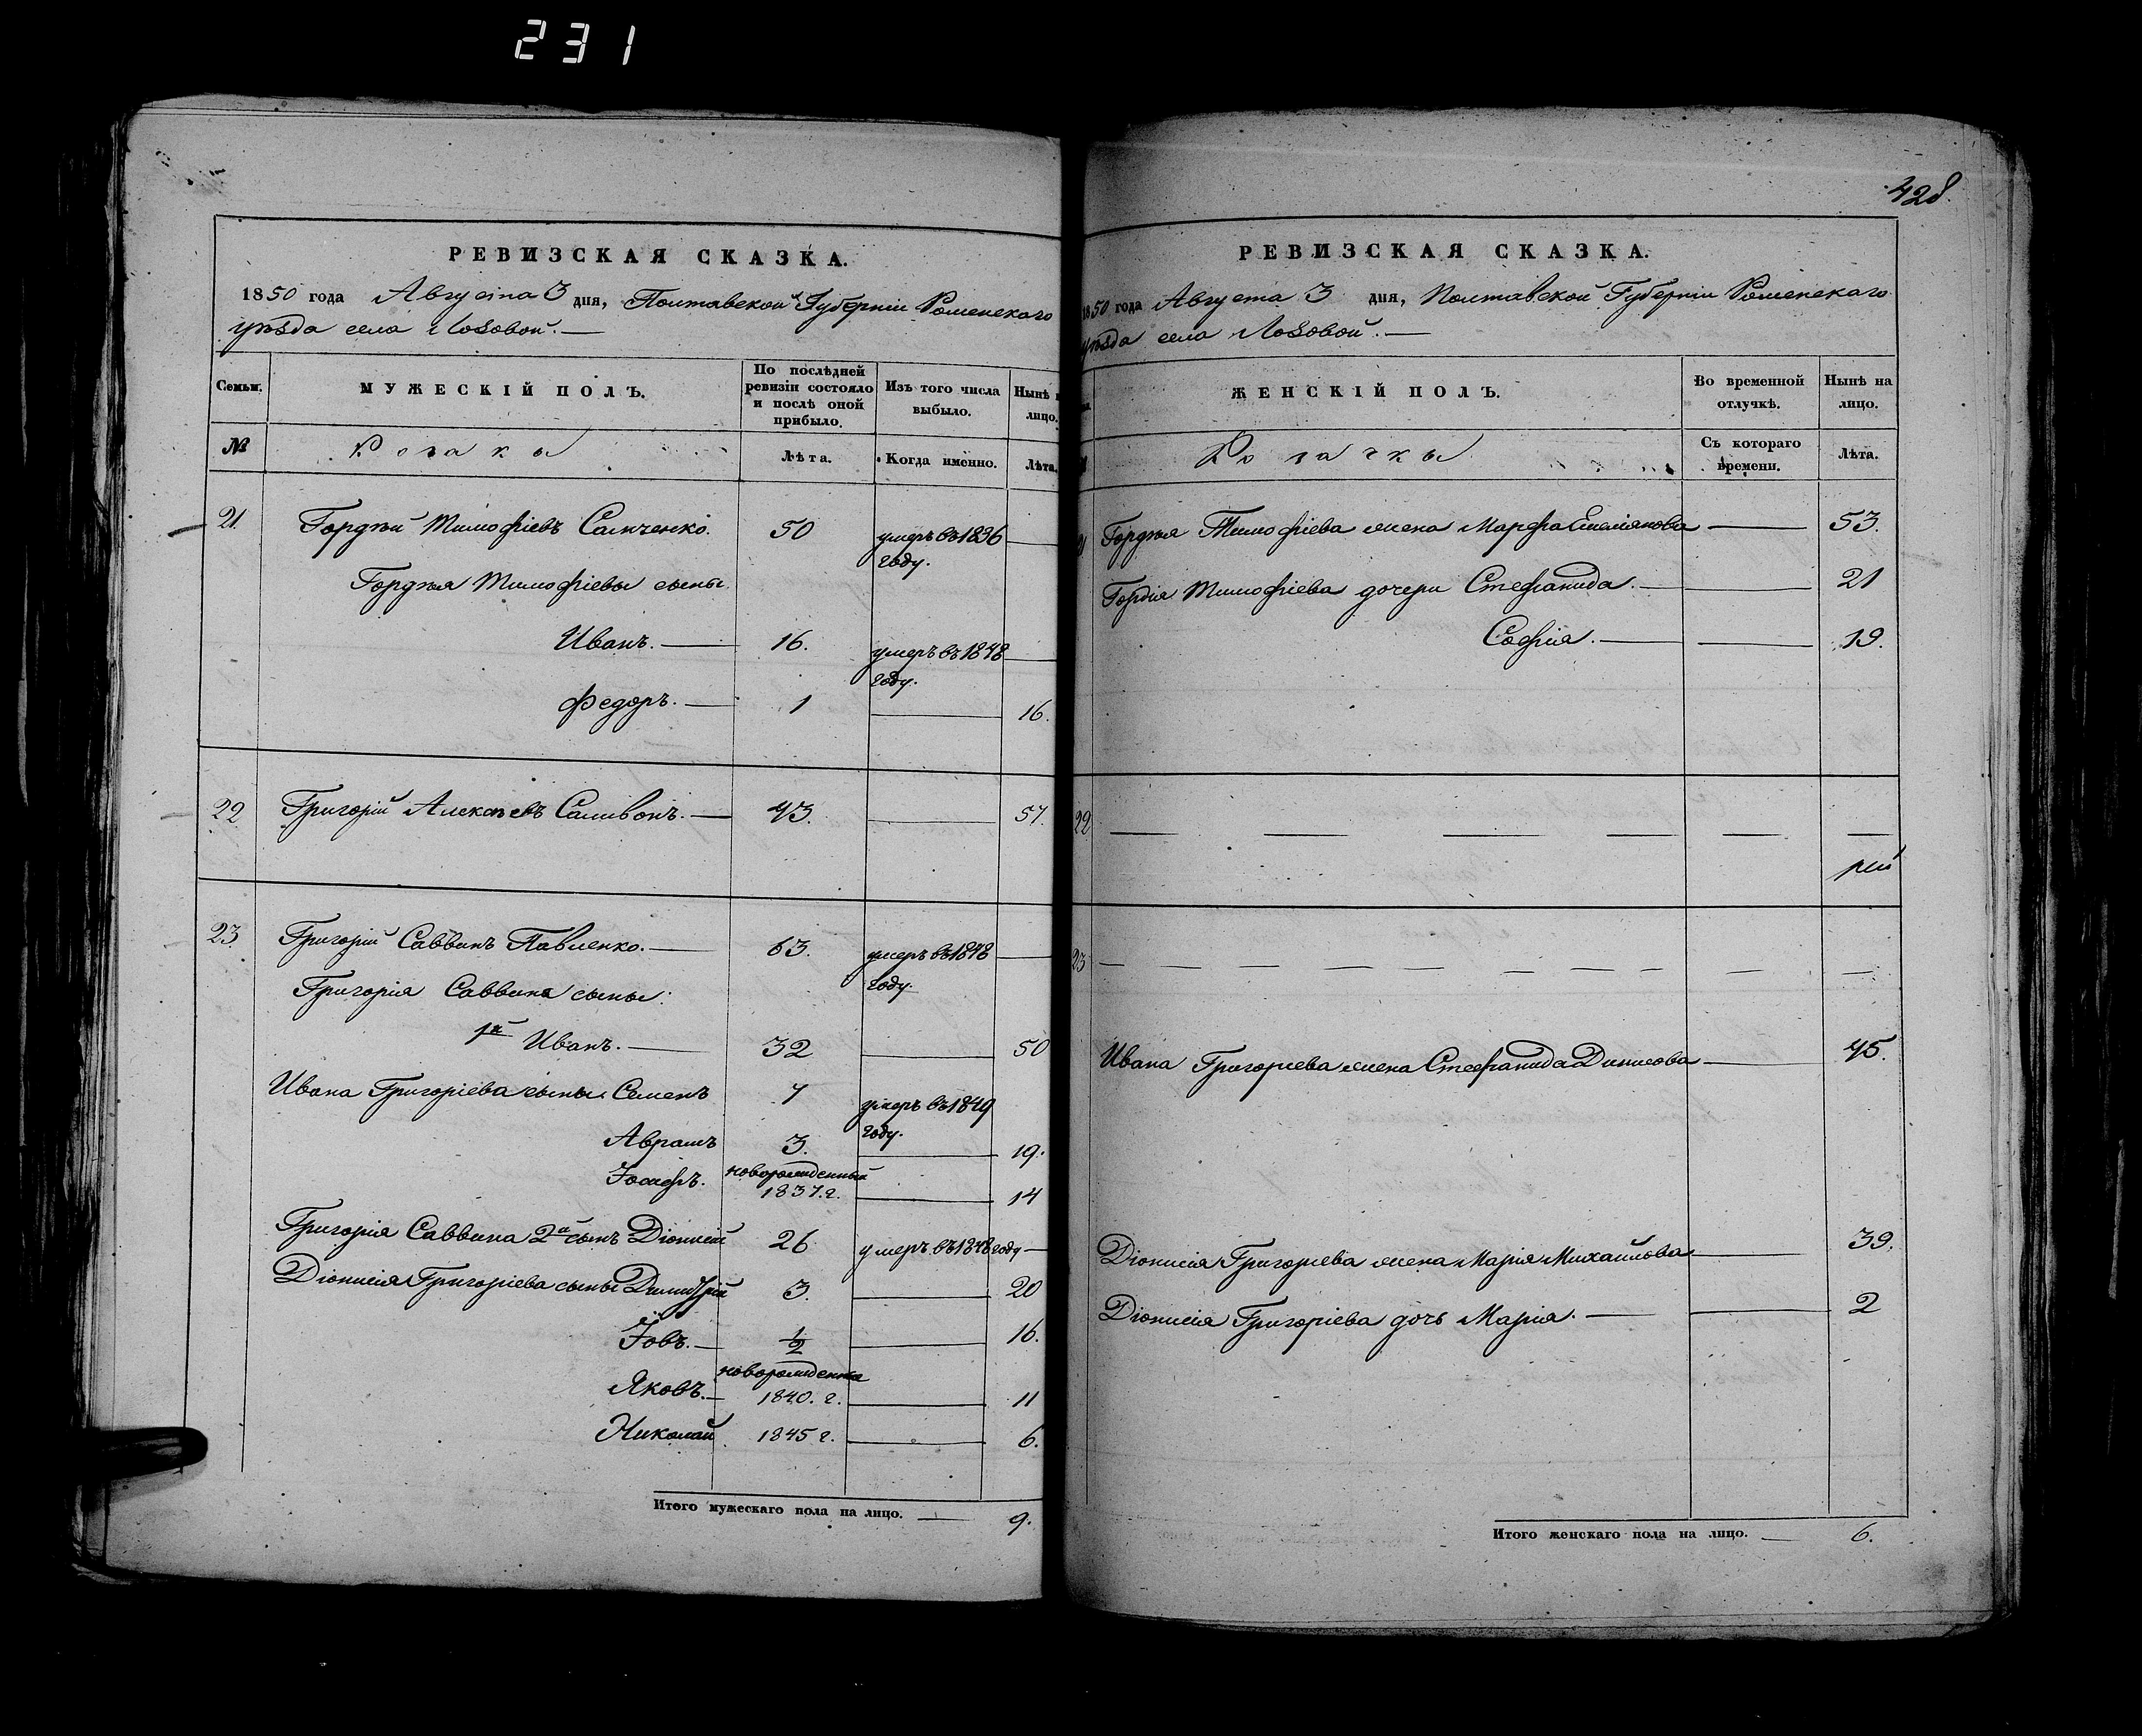 231
РЕВИЗСКАЯ СКАЗКА.
1850 года Августа 3 дня, Полтавской Губерніи Роменскаго
уѣзда села Лозовой. —
Семьи.
МУЖЕСКІЙ ПОЛЪ.
По послѣдней ревизіи состояло и послѣ оной прибыло.
Изъ того числа выбыло.
Нынѣ на лицо.
№
Козаки
Лѣта.
Когда именно.
Лѣта.
21. Гордѣй Тимофіевъ Самченко. 50 умеръ въ 1836 году. —
Гордѣя Тимофіевы сыны
Иванъ. — 16. умеръ въ 1848 году. —
Федоръ. — 1 — 16.
22 Григорій Алексѣевъ Саливонъ. — 43. — 57.
23. Григорій Саввинъ Павленко. — 63. умеръ въ 1848 году. —
Григорія Саввина сыны:
1й Иванъ. — 32 — 50
Ивана Григоріева сыны Семенъ 7 умеръ въ 1849 году.
Аврамъ 3. — 19.
Іосифъ. новорожденный 1837. г. — 14
Григорія Саввина 2й сынъ Діонисій 26 умеръ въ 1848 году —
Діонисія Григоріева сыны Димитрій 3. — 20
Іовъ. — 1/2 — 16.
Яковъ. — новорожденные 1840. г. — 11
Николай 1845 г. — 6.
Итого мужескаго пола на лицо. — 9.
428.
РЕВИЗСКАЯ СКАЗКА.
1850 года Августа 3 дня, Полтавской Губерніи Роменскаго
уѣзда села Лозовой. —
ЖЕНСКІЙ ПОЛЪ.
Во временной отлучкѣ.
Нынѣ на лицо.
Козачки
Съ котораго времени.
Лѣта.
21 Гордѣя Тимофіева жена Марфа Емелянова — 53.
Гордія Тимофіева дочери Стефанида. — 21
Софія. — 19.
22 — — — — — —
23 — — — — — —
Ивана Григоріева жена Стефанида Динисова — 45.
Діонисія Григоріева жена Марія Михайлова — 39.
Діонисія Григоріева дочь Марія. — 2
Итого женскаго пола на лицо. — 6.